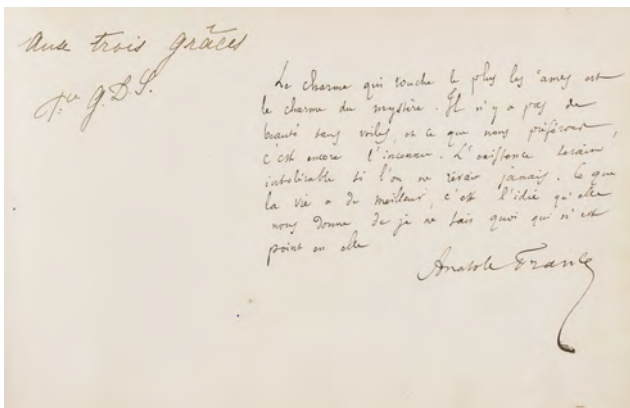 Aux trois grâces
G.D.S.
Le charme qui touche le plus les âmes est
le charme du mystère. Il n'y a pas de
beauté sans voiles, et ce que nous préférons,
c'est encore l'inconnu. L'existence serait
intolérable si l'on ne rêvait jamais. Ce que
la vie a de meilleur, c'est l'idée qu'elle
nous donne de je ne sais quoi qui n'est
point en elle
Anatole France